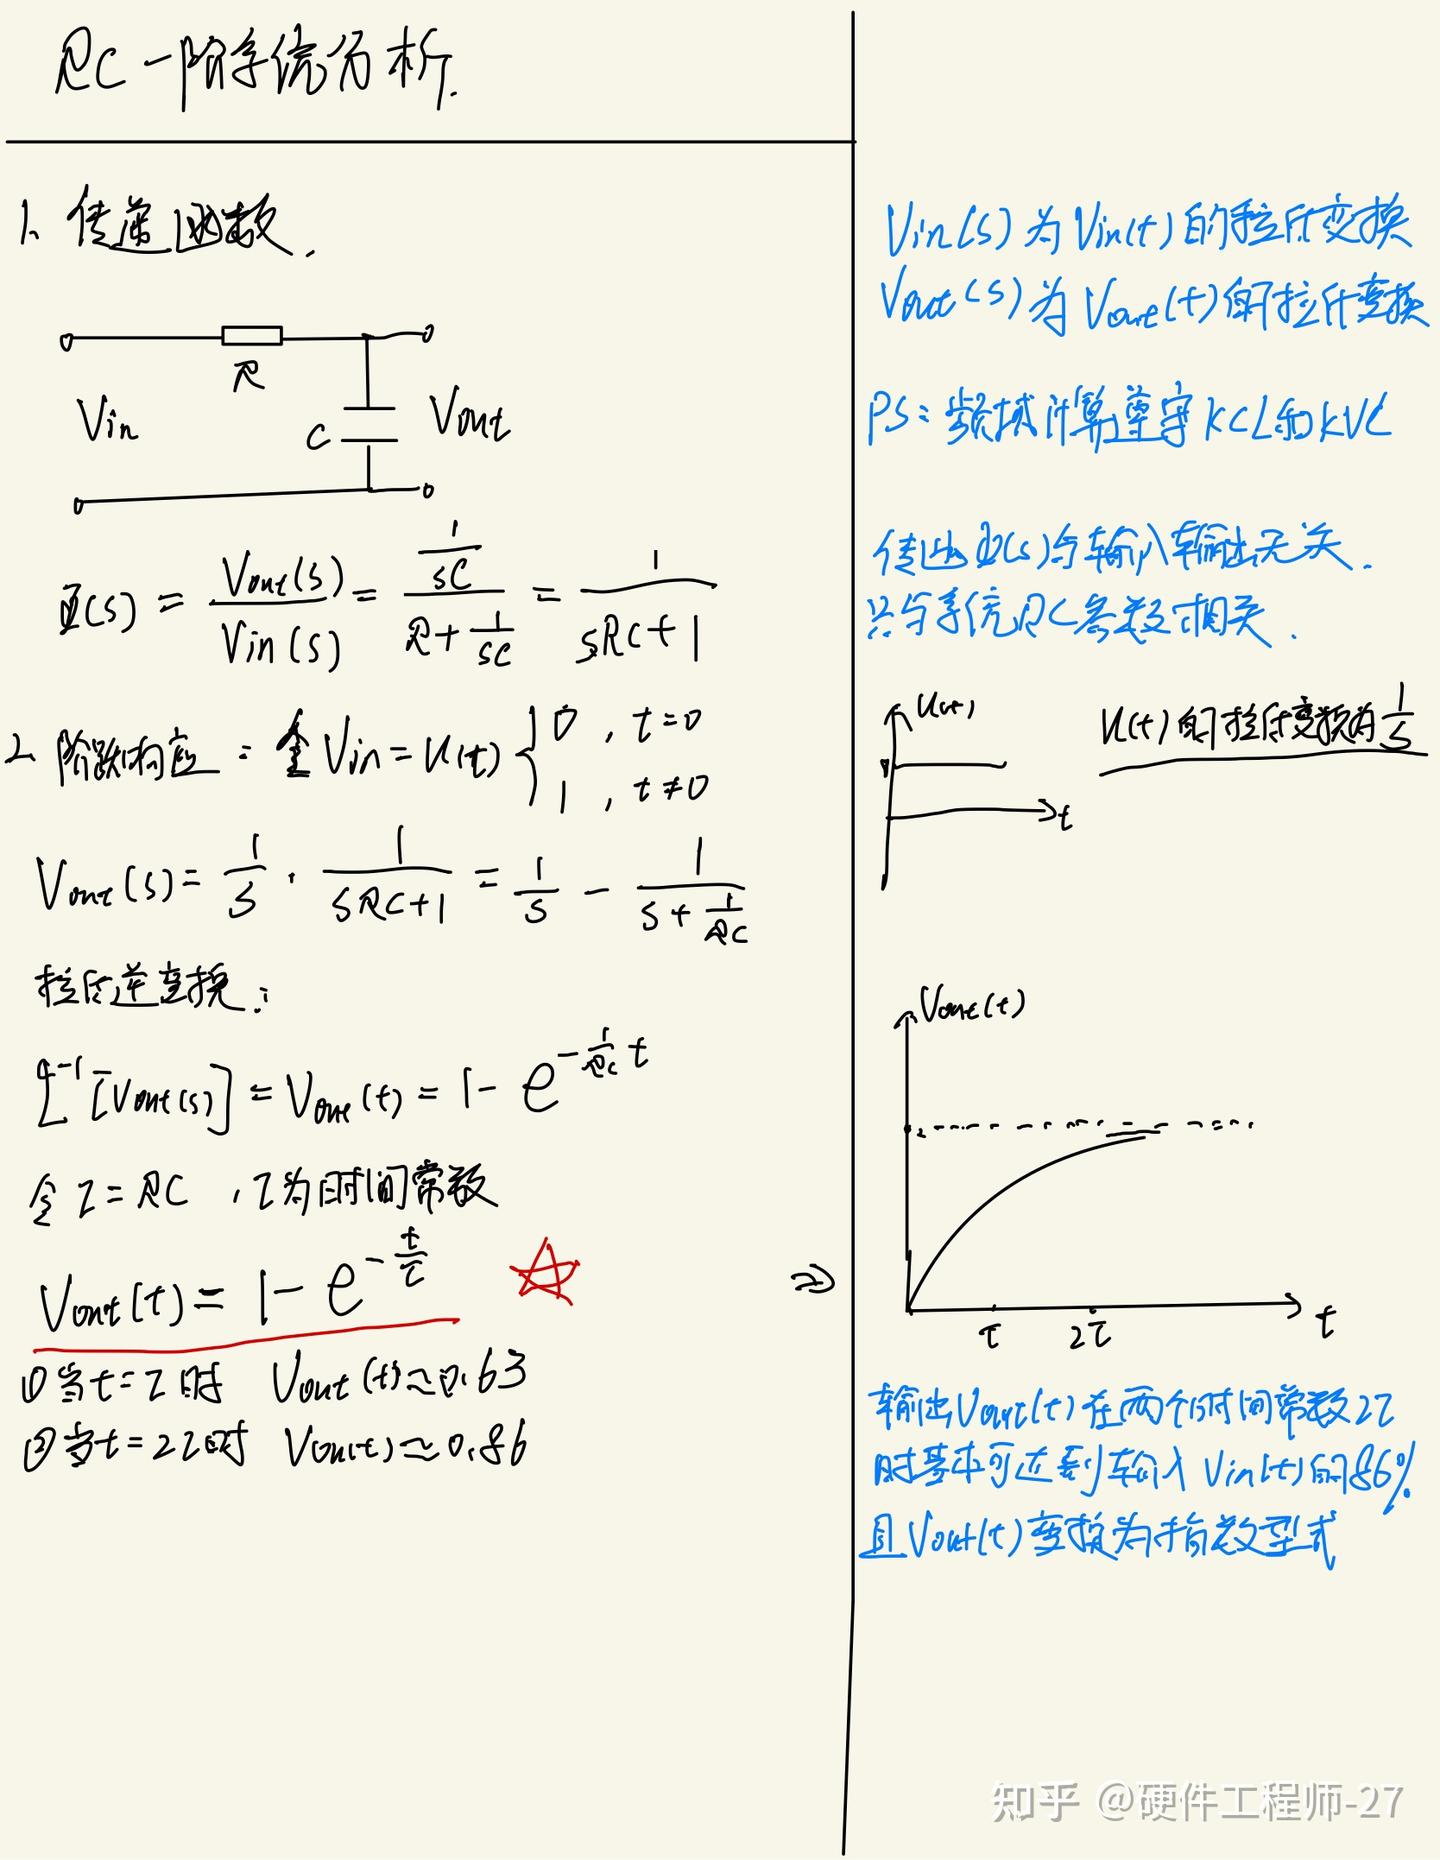 RC一阶系统分析.
1、传递函数.
R
Vin
C
Vout
Φ(s) = Vout(s)/Vin(s) = (1/sC)/(R+1/sC) = 1/(sRC+1)
2、阶跃响应: 令Vin=u(t) { 0, t=0
1, t≠0
Vout(s) = 1/s · 1/(sRC+1) = 1/s - 1/(s+1/RC)
拉氏逆变换:
L⁻¹[Vout(s)] = Vout(t) = 1-e^(-1/RC t)
令τ=RC,τ为时间常数
Vout(t) = 1-e^(-t/τ)
①当t=τ时 Vout(t)≈0.63
②当t=2τ时 Vout(t)≈0.86
Vin(s)为Vin(t)的拉氏变换
Vout(s)为Vout(t)的拉氏变换
PS:频域计算遵守KCL和KVL
传递Φ(s)与输入输出无关.
只与系统RC参数相关.
u(t)
t
u(t)的拉氏变换为1/s
Vout(t)
⇒
τ
2τ
t
输出Vout(t)在两个时间常数2τ
时基本可达到输入Vin(t)的86%
且Vout(t)变换为指数型式
知乎 @硬件工程师-27